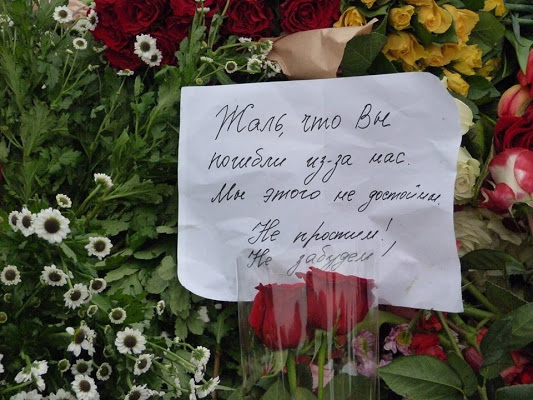 Жаль, что Вы
погибли из-за нас.
Мы этого не достойны.
Не простим!
Не забудем!